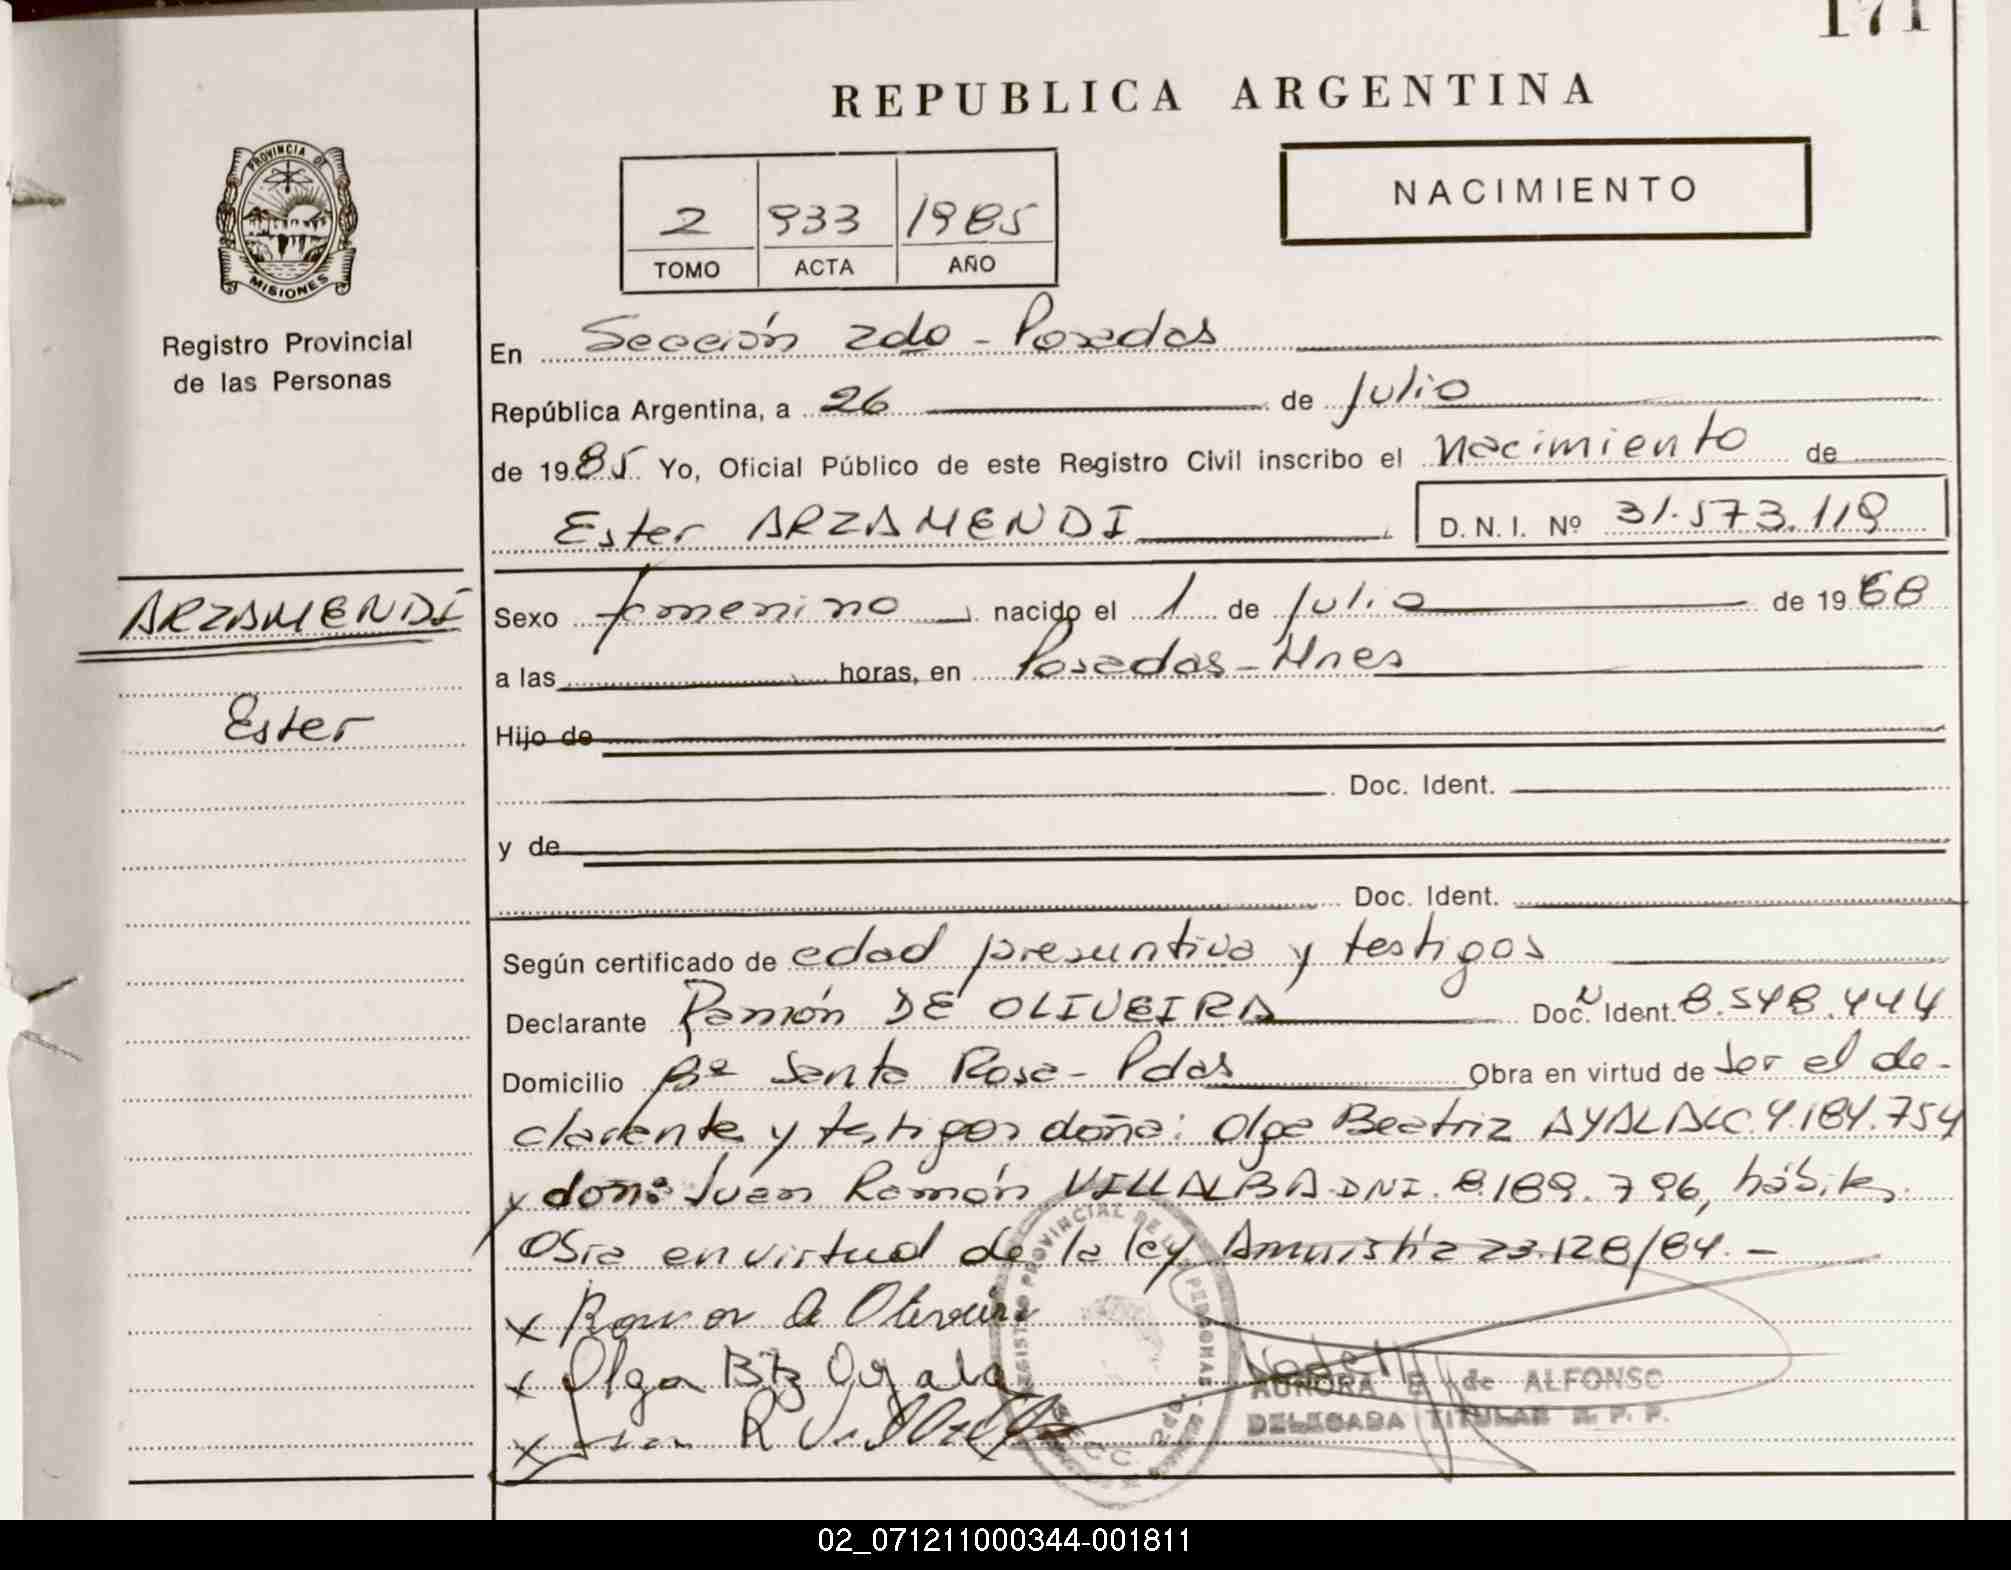 171
REPUBLICA ARGENTINA
PROVINCIA DE
MISIONES
Registro Provincial
de las Personas
2 933 1985
TOMO ACTA AÑO
NACIMIENTO
En Sección 2da - Posadas
República Argentina, a 26 de Julio
de 1985 Yo, Oficial Público de este Registro Civil inscribo el Nacimiento de
Ester ARZAMENDI D. N. I. Nº 31.573.119
ARZAMENDI
Ester
Sexo femenino nacido el 1 de Julio de 1968
a las horas, en Posadas - Mnes
Hijo de
Doc. Ident.
y de
Doc. Ident.
Según certificado de edad presuntiva y testigos
Declarante Ramón DE OLIVEIRA Doc. Ident. 8.548.444
Domicilio Bº Santa Rosa - Pdas Obra en virtud de ser el de-
clarante y testigos doña: Olga Beatriz AYALA LC. 4.184.754
y don: Juan Ramón VILLALBA DNI. 8.189.796, hábiles.
Obra en virtud de la ley Amnistía 23.128/84.-
x Ramon de Oliveira
x Olga Btz Ayala
x Juan R Villalba
REGISTRO PROVINCIAL DE LAS PERSONAS
SECC. 2da.
AURORA E. de ALFONSO
DELEGADA TITULAR R. P. P.
02_071211000344-001811